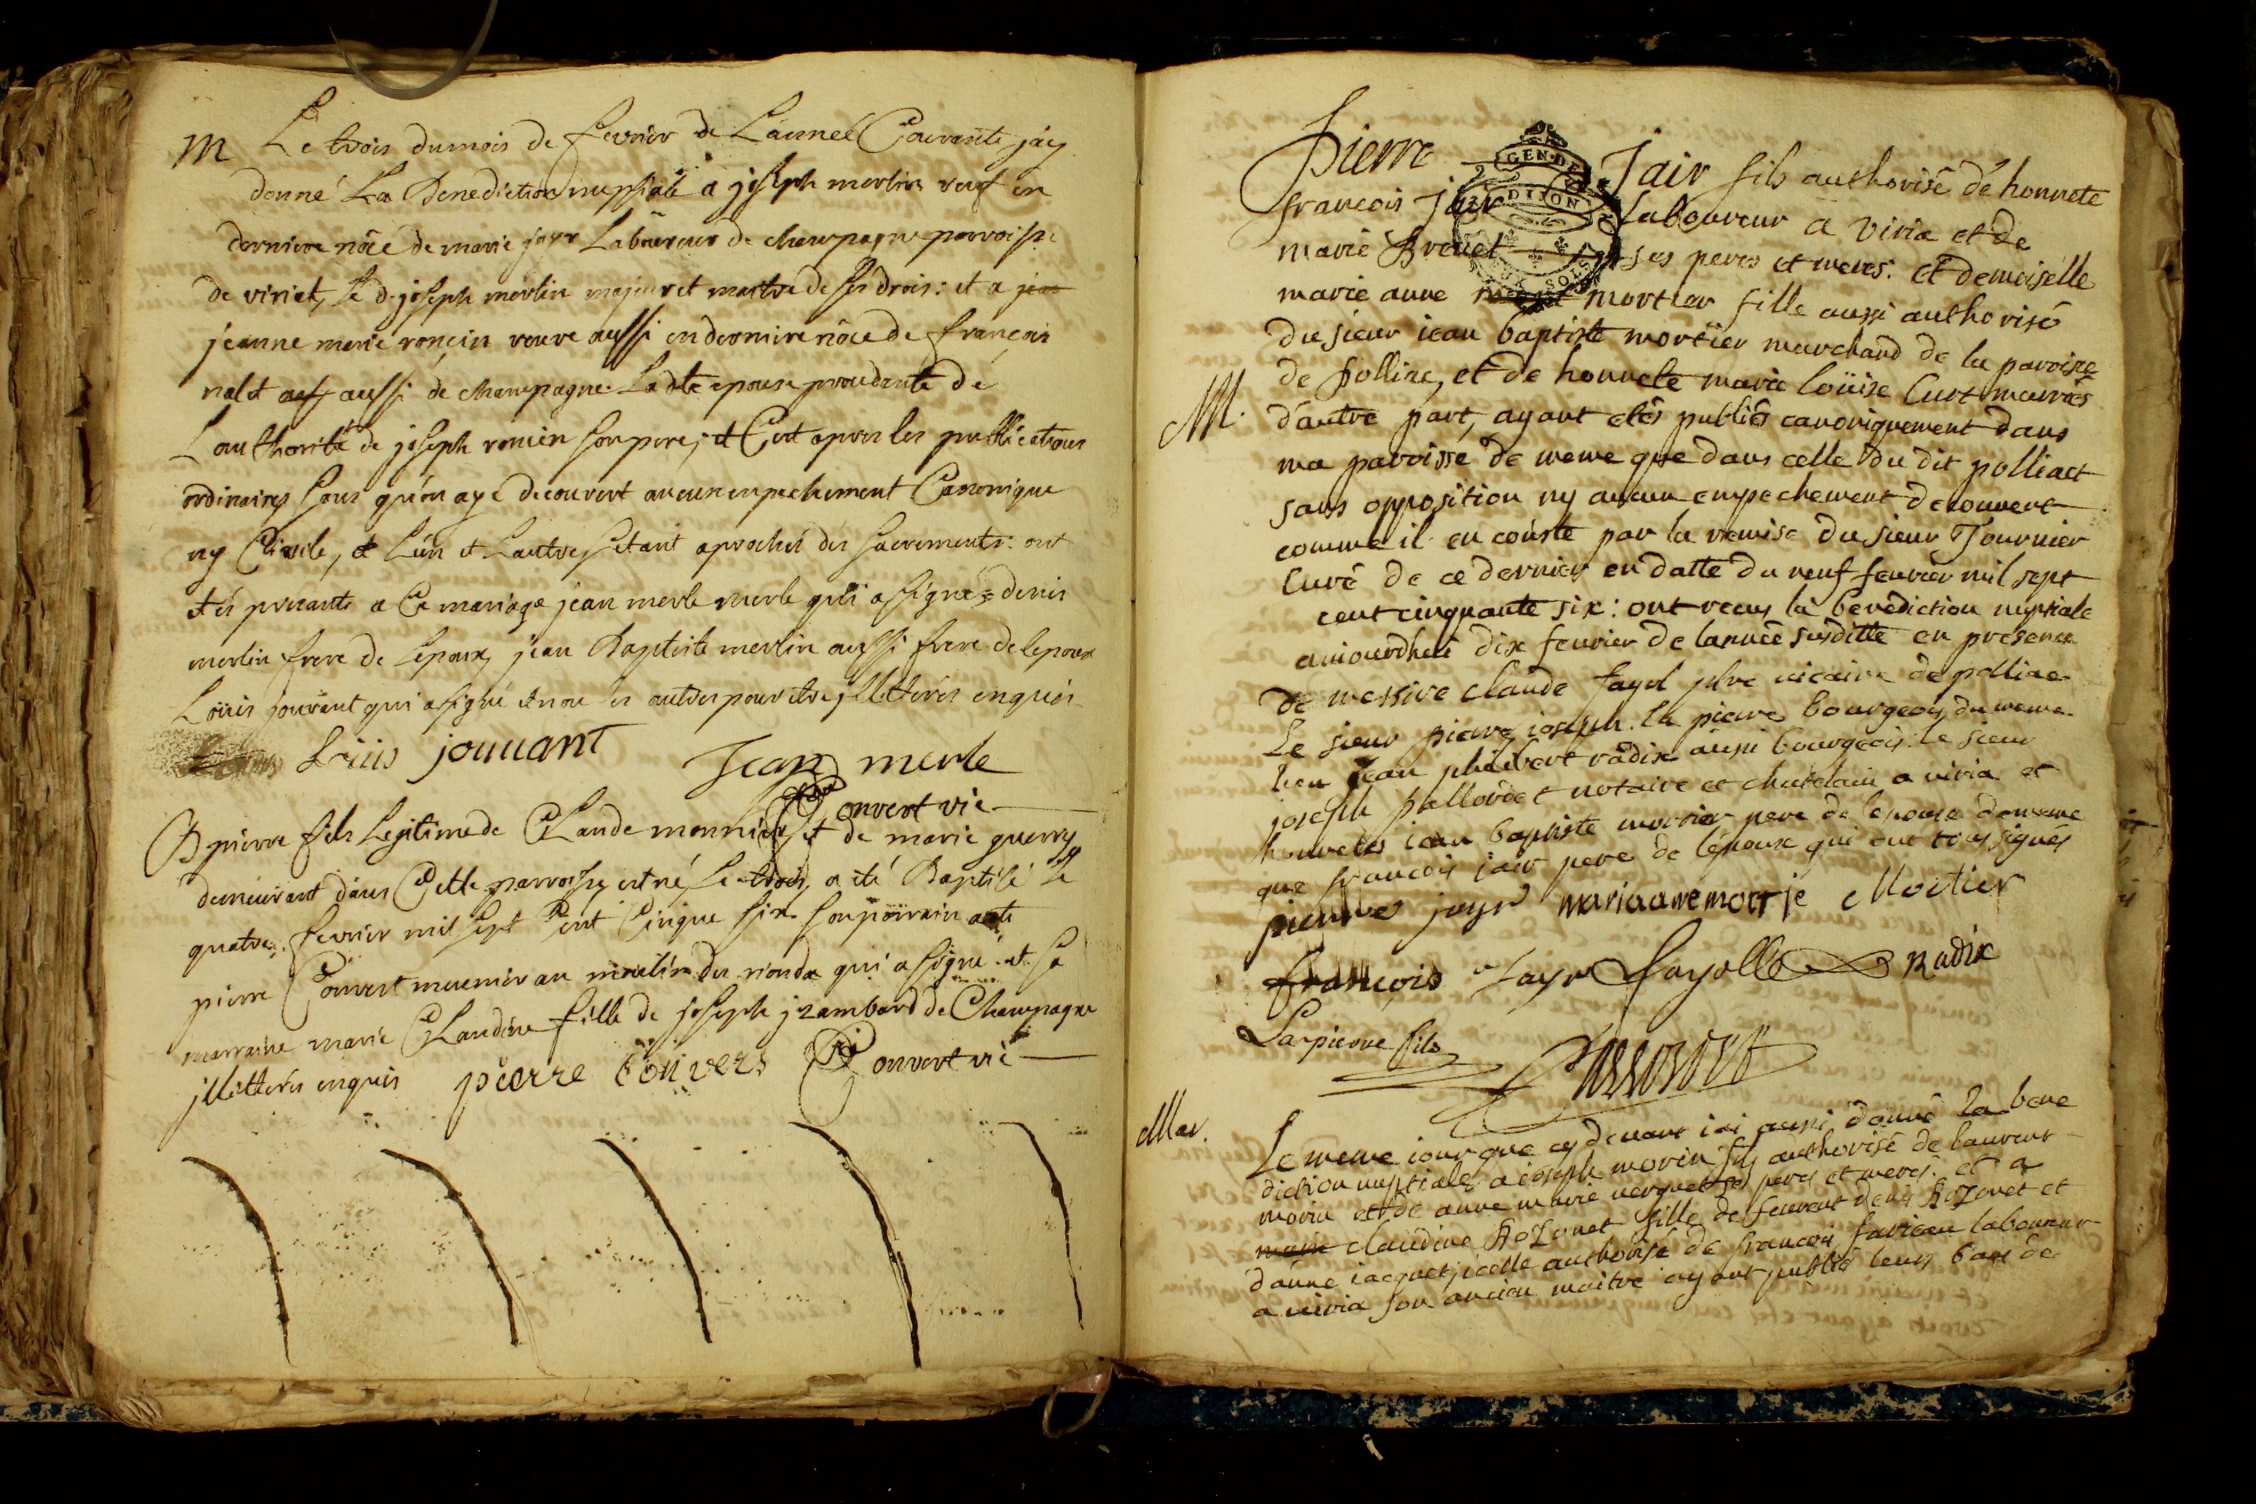 M Le trois dumois de fevrier de Lanneé Courante jay
donné La Benediction nuptiale a joseph merlin veuf en
derniere nôce de marie jayr Laboureur de champagne parroisse
de viriat, le d. joseph merlin majeur et maitre de ses drois: et a jea
jeanne marie roncin veuve aussi en dernire nôce de françois
aussi de champagne. Ladte epouse proudante de
Lauthorité de joseph roncin son pere; et C'est apres les publications
ordinaires sans qu'on aye decouvert aucun enpechement Canonique
ny Civile, et L'un et Lautre s'etant aprochés des sacrements: ont
etés presants a Ce mariage jean merle merle qui a signé, denis
merlin frere de L'epoux, jean Baptiste merlin aussi frere de lepoux
Loüis jouvant qui a signé et non les autres pour etre jllitterés enquis
Loüis jouuant
Jean merle
Convert vic
B pierre fils Legitime de CLaude monnier et de marie guerry
demeurant dans Cette parroisse est né Le trois, a eté Baptisé le
quatre fevrier mil sept Cent Cinque six son parrain a eté
pierre Convert meunier au moulin des ronda qui a signé et sa
marraine marie CLaudine fille de joseph jzambard de Champagne
jllitterés enquis pierre convers Convert vic
Pierre Jair fils authorisé de honnete
GEN. DE DIJON
SOLS
francois Jair Laboureur a viria et de
marie Brevet ses peres et meres: et demoiselle
marie anne mortier fille aussi authorisé
du sieur iean baptiste mortier marchand de la paroisse
de polliac, et de honnete marie loüise Curt mariés
M. d'autre part, ayant etés publiés canoniquement dans
ma paroisse de meme que dans celle du dit polliact
sans opposition ny aucun empechement decouvert
comme il en conste par la remise du sieur Tournier
Curé de ce dernier en datte du neuf feurier mil sept
cent cinquante six: ont recus la benediction nuptiale
auiourdheü dix feurier de lannée susditte en presence
de messire claude fayol ptre vicaire de polliac
Le sieur pierre ioseph la pierre bourgeois du meme
lieu jean philibert radix aussi bourgeois le sieur
joseph notaire et chatelain a viria et
honnetes iean baptiste mortier pere de lepouse de meme
que francois jair pere de lépoux qui ont tous signés
pierre jayr mariaanemortje Mortier
francois Jayr fayolle Radix
Lapierre fils
Mar. Le meme iour que cy devant iai aussi donné la bene
diction nuptiale a ioseph morin fils authorisé de laurent
morin et de anne marie verguet ses peres et meres. et a
marie claudine Rozonet fille de feu Rozonet et
d'anne iacquet, icelle authorisé de francois laboureur
a viria son ancien maitre ayant publié leurs bans de